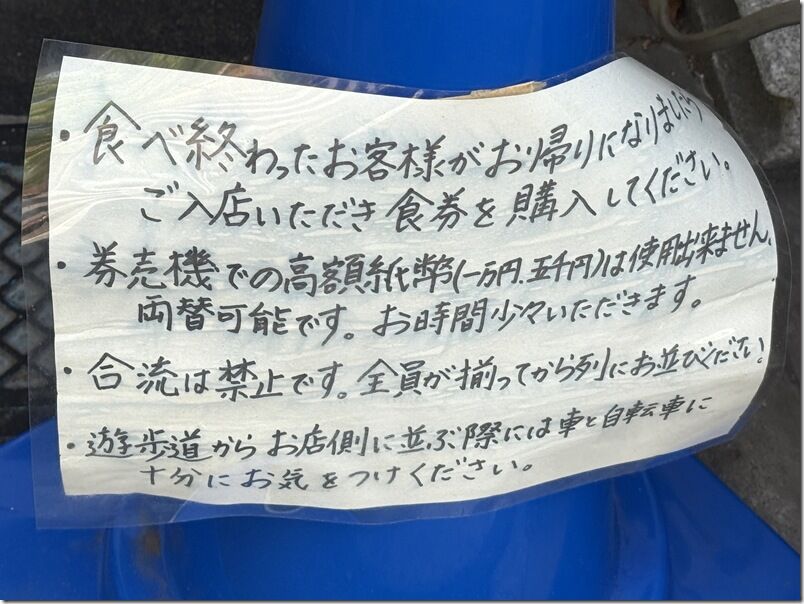 ・食べ終わったお客様がお帰りになりましたら
ご入店いただき食券を購入してください。
・券売機での高額紙幣(一万円、五千円)は使用出来ません、
両替可能です。お時間少々いただきます。
・合流は禁止です。全員が揃ってから列にお並びください。
・遊歩道からお店側に並ぶ際には車と自転車に
十分にお気をつけください。